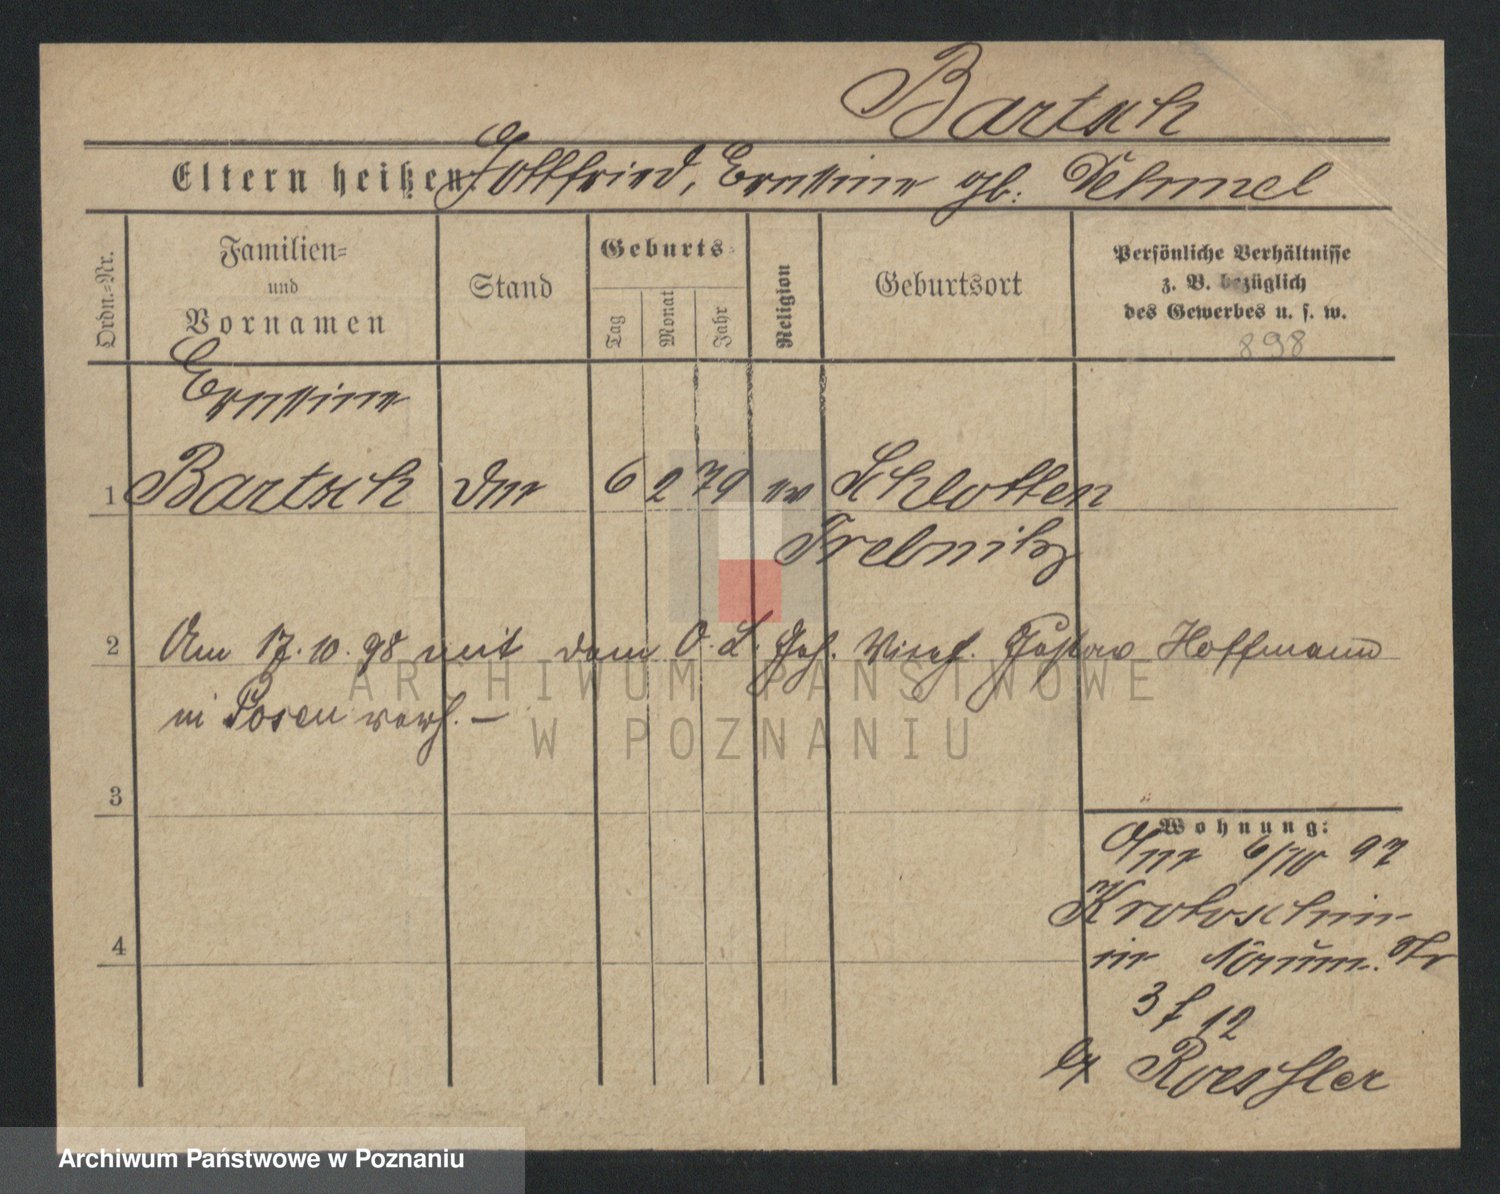 Bartsch
Eltern heißen Gottfried, Ernstine gb. Dehmel
Ordn.-Nr.
Familien-
und
Vornamen
Stand
Geburts-
Tag
Monat
Jahr
Religion
Geburtsort
Persönliche Verhältnisse
z. B. bezüglich
des Gewerbes u. s. w.
898
Ernstine
1 Bartsch 6 2 79 ev Schlotten
Trebnitz
2 Am 17. 10. 98 mit dem O. L. Gustav Hoffmann
in Posen verh. —
ARCHIWUM PAŃSTWOWE
W POZNANIU
3
Wohnung:
6/10 97
Krotoschin
4
in
3 12
Roeszler
Archiwum Państwowe w Poznaniu